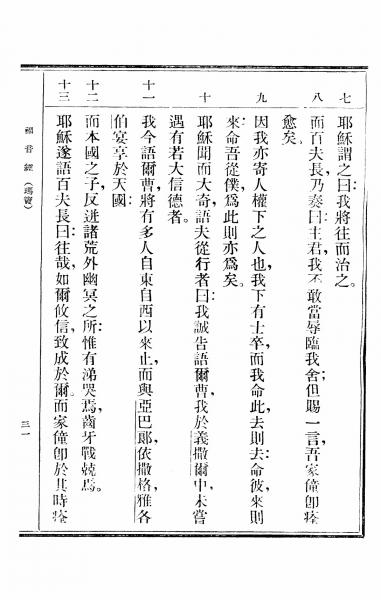 七　耶穌謂之曰：我將往而治之。
八　而百夫長乃奏曰：主君，我不敢當辱臨我舍；但賜一言，吾家僮卽痊
愈矣。
九　因我亦寄人權下之人也，我下有士卒，而我命此去則去，命彼來則
來，命吾從僕，爲此則亦爲矣。
十　耶穌聞而大奇，語夫從行者曰：我誠告語爾曹，我於義撒爾中，未嘗
遇有若大信德者。
十一　我今語爾曹，將有多人自東自西以來止，而與亞巴郞，依撒格，雅各
伯宴享於天國：
十二　而本國之子，反迸諸荒外幽冥之所：惟有涕哭焉，齒牙戰兢焉。
十三　耶穌遂語百夫長曰：往哉，如爾攸信，致成於爾。而家僮卽於其時痊
福音經（瑪竇）
三一